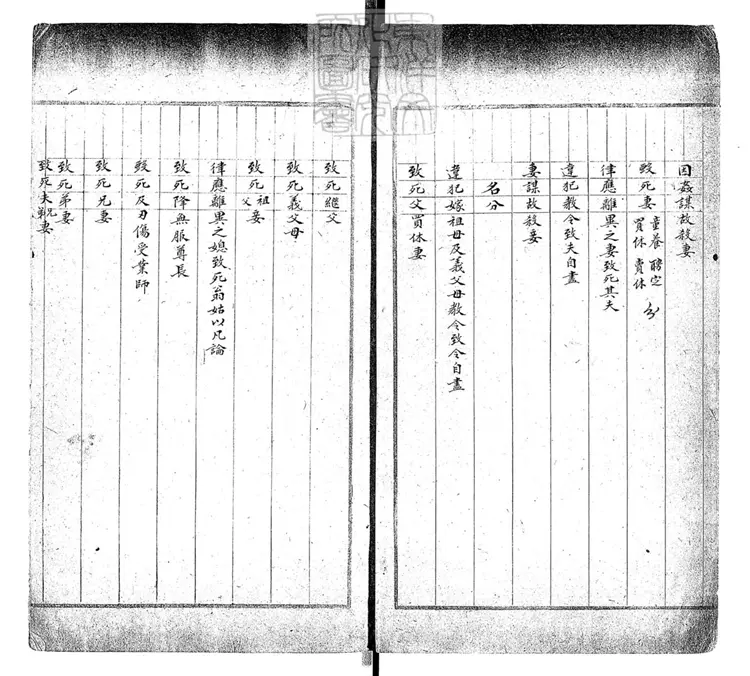 東洋文
化研究
所圖書
因姦謀故殺妻
致死妻 童養 聘定 買休 賣休 分
律應離異之妻致死其夫
違犯教令致夫自盡
妻謀故殺妾
名分
違犯嫁祖母及義父母教令致令自盡
致死父買休妻
致死繼父
致死義父母
致死祖父妾
律應離異之媳致死翁姑以凡論
致死降無服尊長
毆死及刃傷受業師
致死兄妻
致死弟妻
致死夫兄弟妻